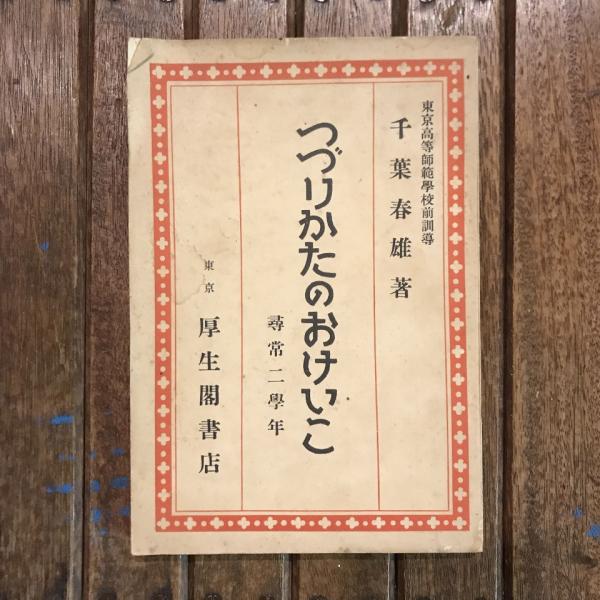 東京高等師範學校前訓導
千葉春雄著
つづりかたのおけいこ
尋常二學年
東京
厚生閣書店